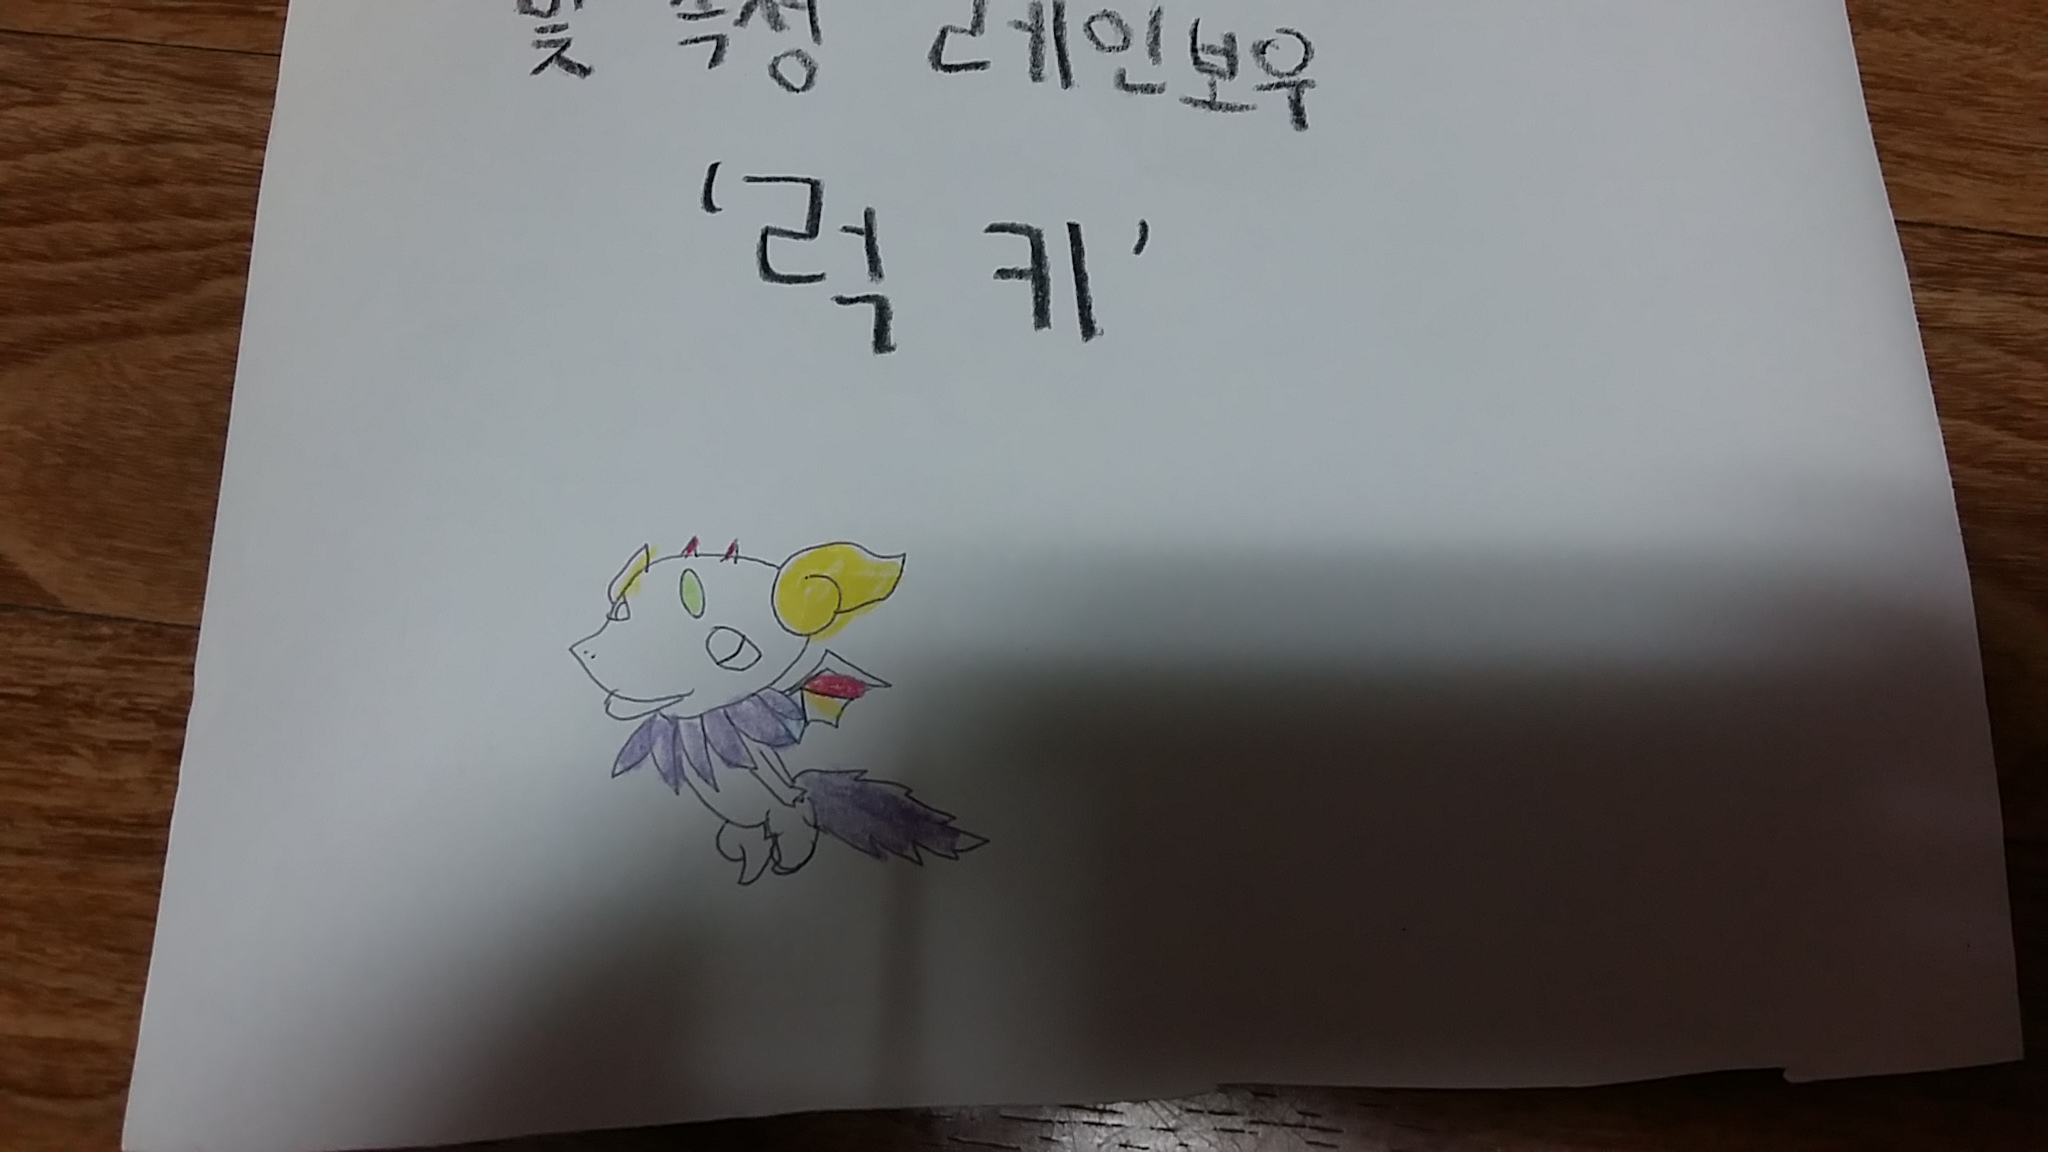 빛 속성 레인보우
'럭키'